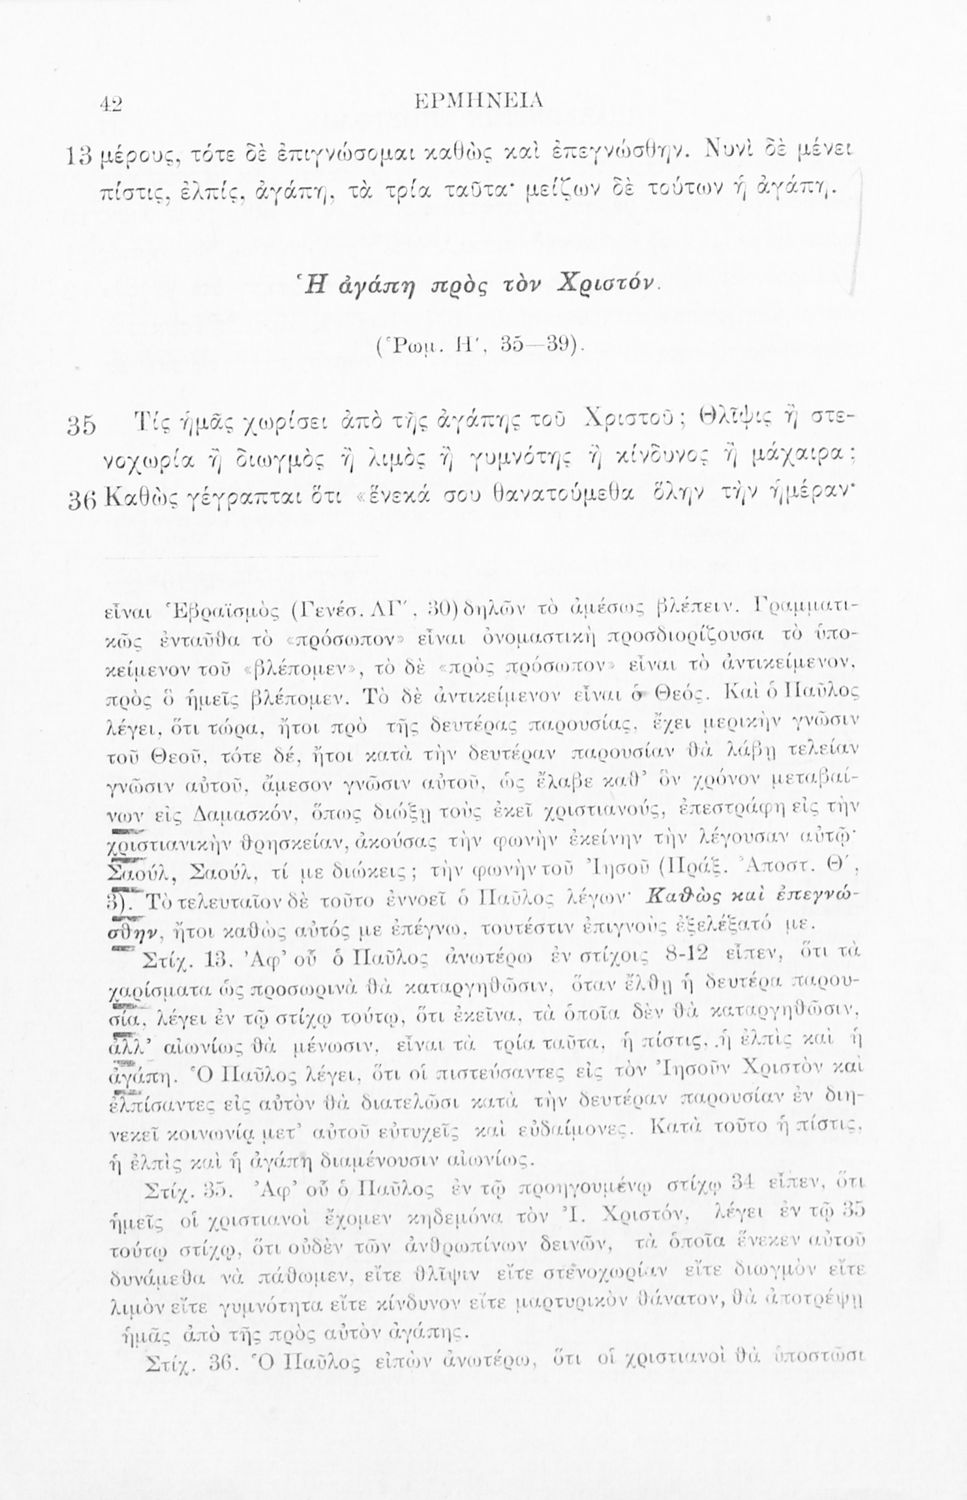 42 ΕΡΜΗΝΕΙΑ
13 μέρους, τότε δὲ ἐπιγνώσομαι καθὼς καὶ ἐπεγνώσθην. Νυνὶ δὲ μένει
πίστις, ἐλπίς, ἀγάπη, τὰ τρία ταῦτα· μείζων δὲ τούτων ἡ ἀγάπη.
Ἡ ἀγάπη πρὸς τὸν Χριστόν.
(Ῥωμ. Η', 35—39).
35 Τίς ἡμᾶς χωρίσει ἀπὸ τῆς ἀγάπης τοῦ Χριστοῦ; Θλῖψις ἢ στε-
νοχωρία ἢ διωγμὸς ἢ λιμὸς ἢ γυμνότης ἢ κίνδυνος ἢ μάχαιρα;
36 Καθὼς γέγραπται ὅτι «ἕνεκά σου θανατούμεθα ὅλην τὴν ἡμέραν·
εἶναι Ἑβραϊσμὸς (Γενέσ. ΛΓ', 30) δηλῶν τὸ ἀμέσως βλέπειν. Γραμματι-
κῶς ἐνταῦθα τὸ «πρόσωπον» εἶναι ὀνομαστικὴ προσδιορίζουσα τὸ ὑπο-
κείμενον τοῦ «βλέπομεν», τὸ δὲ «πρὸς πρόσωπον» εἶναι τὸ ἀντικείμενον,
πρὸς ὃ ἡμεῖς βλέπομεν. Τὸ δὲ ἀντικείμενον εἶναι ὁ Θεός. Καὶ ὁ Παῦλος
λέγει, ὅτι τώρα, ἤτοι πρὸ τῆς δευτέρας παρουσίας, ἔχει μερικὴν γνῶσιν
τοῦ Θεοῦ, τότε δέ, ἤτοι κατὰ τὴν δευτέραν παρουσίαν θὰ λάβῃ τελείαν
γνῶσιν αὐτοῦ, ἄμεσον γνῶσιν αὐτοῦ, ὡς ἔλαβε καθ' ὃν χρόνον μεταβαί-
νων εἰς Δαμασκόν, ὅπως διώξῃ τοὺς ἐκεῖ χριστιανούς, ἐπεστράφη εἰς τὴν
χριστιανικὴν θρησκείαν, ἀκούσας τὴν φωνὴν ἐκείνην τὴν λέγουσαν αὐτῷ·
Σαούλ, Σαούλ, τί με διώκεις; τὴν φωνὴν τοῦ Ἰησοῦ (Πράξ. Ἀποστ. Θ',
3). Τὸ τελευταῖον δὲ τοῦτο ἐννοεῖ ὁ Παῦλος λέγων· Καθὼς καὶ ἐπεγνώ-
σθην, ἤτοι καθὼς αὐτός με ἐπέγνω, τουτέστιν ἐπιγνοὺς ἐξελέξατό με.
Στίχ. 13. Ἀφ' οὗ ὁ Παῦλος ἀνωτέρω ἐν στίχοις 8-12 εἶπεν, ὅτι τὰ
χαρίσματα ὡς προσωρινὰ θὰ καταργηθῶσιν, ὅταν ἔλθῃ ἡ δευτέρα παρου-
σία, λέγει ἐν τῷ στίχῳ τούτῳ, ὅτι ἐκεῖνα, τὰ ὁποῖα δὲν θὰ καταργηθῶσιν,
ἀλλ' αἰωνίως θὰ μένωσιν, εἶναι τὰ τρία ταῦτα, ἡ πίστις, ἡ ἐλπὶς καὶ ἡ
ἀγάπη. Ὁ Παῦλος λέγει, ὅτι οἱ πιστεύσαντες εἰς τὸν Ἰησοῦν Χριστὸν καὶ
ἐλπίσαντες εἰς αὐτὸν θὰ διατελῶσι κατὰ τὴν δευτέραν παρουσίαν ἐν διη-
νεκεῖ κοινωνίᾳ μετ' αὐτοῦ εὐτυχεῖς καὶ εὐδαίμονες. Κατὰ τοῦτο ἡ πίστις,
ἡ ἐλπὶς καὶ ἡ ἀγάπη διαμένουσιν αἰωνίως.
Στίχ. 35. Ἀφ' οὗ ὁ Παῦλος ἐν τῷ προηγουμένῳ στίχῳ 34 εἶπεν, ὅτι
ἡμεῖς οἱ χριστιανοὶ ἔχομεν κηδεμόνα τὸν Ἰ. Χριστόν, λέγει ἐν τῷ 35
τούτῳ στίχῳ, ὅτι οὐδὲν τῶν ἀνθρωπίνων δεινῶν, τὰ ὁποῖα ἕνεκεν αὐτοῦ
δυνάμεθα νὰ πάθωμεν, εἴτε θλῖψιν εἴτε στενοχωρίαν εἴτε διωγμὸν εἴτε
λιμὸν εἴτε γυμνότητα εἴτε κίνδυνον εἴτε μαρτυρικὸν θάνατον, θὰ ἀποτρέψῃ
ἡμᾶς ἀπὸ τῆς πρὸς αὐτὸν ἀγάπης.
Στίχ. 36. Ὁ Παῦλος εἰπὼν ἀνωτέρω, ὅτι οἱ χριστιανοὶ θὰ ὑποστῶσι